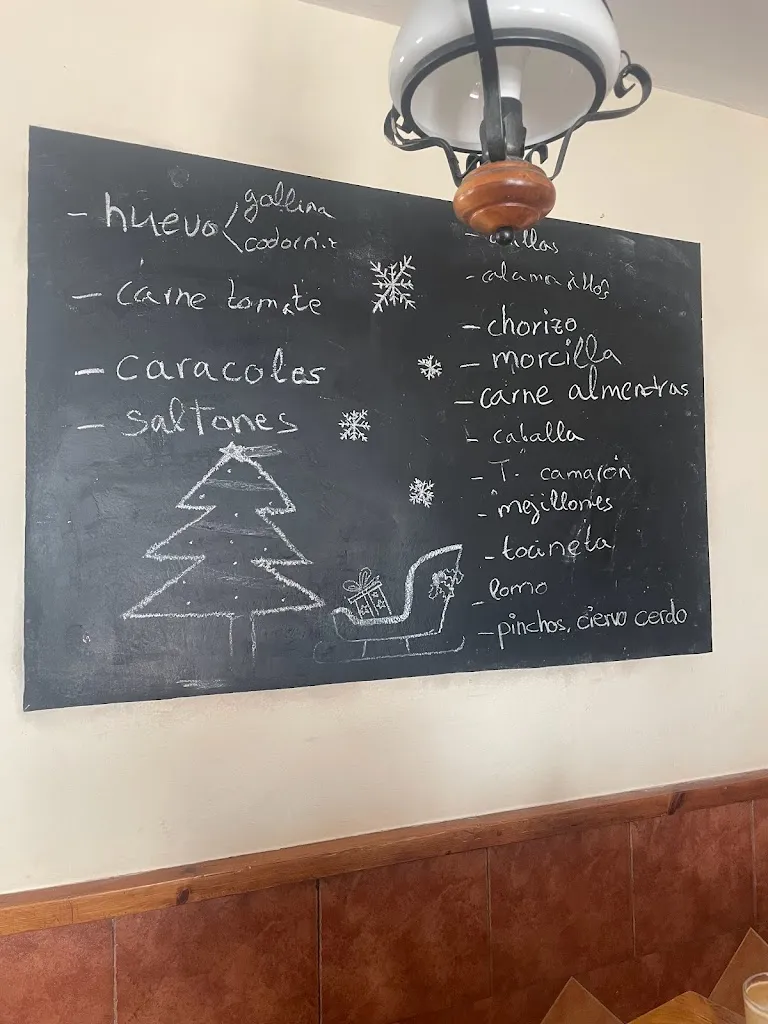 - huevo
gallina
codorniz
- carne tomate
- caracoles
- saltones
- calamarillos
- chorizo
- morcilla
- carne almendras
- caballa
- T. camarón
- mejillones
- tocineta
- lomo
- pinchos, ciervo cerdo